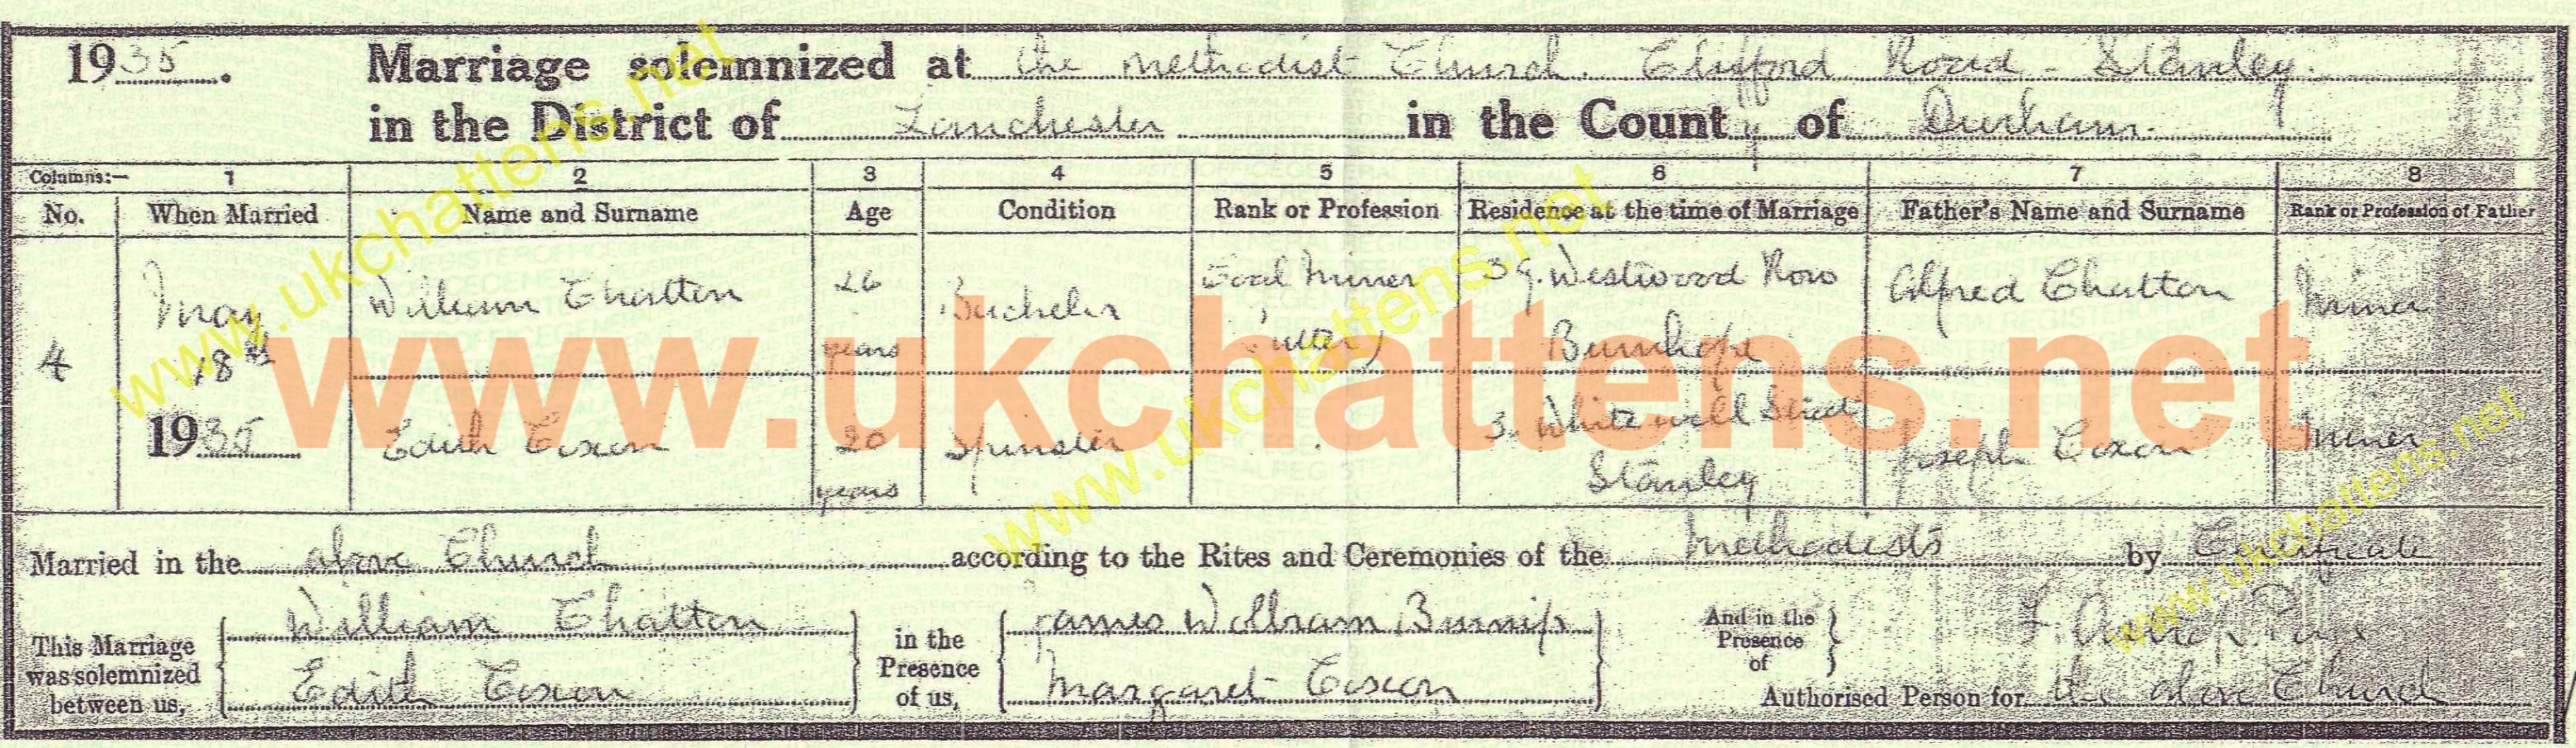 1935. Marriage solemnized at the Methodist Church. Clifford Road - Stanley.
in the District of Lanchester in the County of Durham.
Columns:— 1 2 3 4 5 6 7 8
No. When Married Name and Surname Age Condition Rank or Profession Residence at the time of Marriage Father's Name and Surname Rank or Profession of Father
4 May 18th 1935 William Chatten 26 years Bachelor Coal Miner 39. Westwood Row Burnhope Alfred Chatton Miner
Edith Coxon 20 years Spinster 3. Whitewell Street Stanley Joseph Coxon Miner
Married in the above Church according to the Rites and Ceremonies of the Methodists by Certificate
This Marriage was solemnized between us, William Chatton Edith Coxon in the Presence of us, James William Burnip Margaret Coxon And in the Presence of
Authorised Person for the above Church
www.ukchattens.net
www.ukchattens.net
www.ukchattens.net
www.ukchattens.net